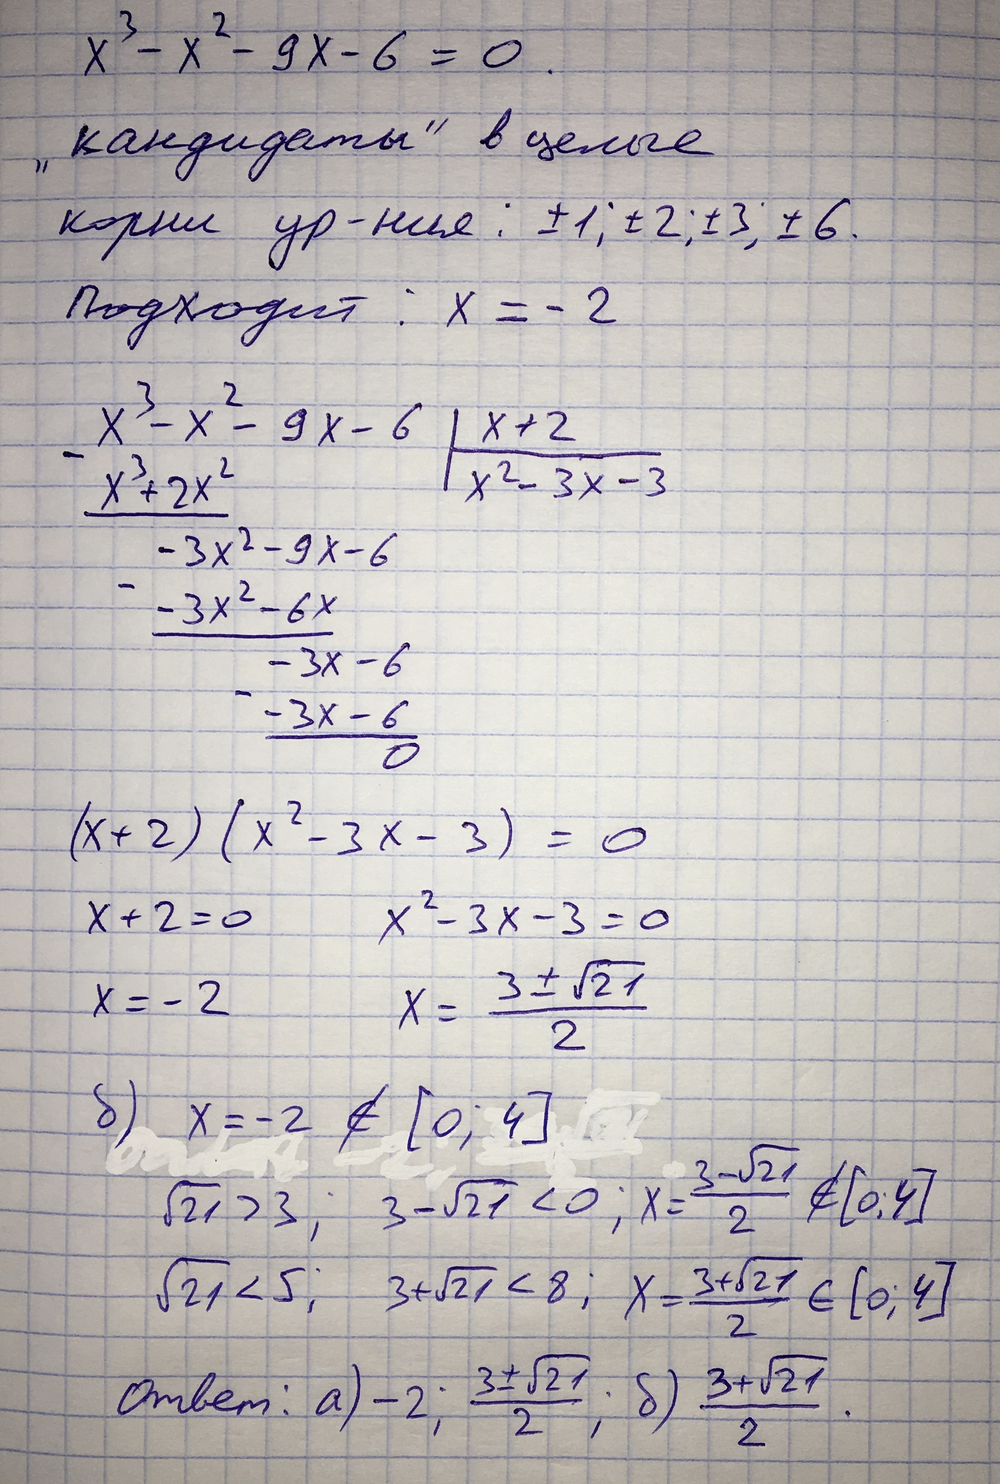 x³ - x² - 9x - 6 = 0.
„кандидаты" в целые
корни ур-ния: ±1; ±2; ±3; ±6.
Подходит: x = -2
x³ - x² - 9x - 6 | x + 2
- x³ + 2x² | x² - 3x - 3
-3x² - 9x - 6
- -3x² - 6x
-3x - 6
- -3x - 6
0
(x + 2)(x² - 3x - 3) = 0
x + 2 = 0 x² - 3x - 3 = 0
x = -2 x = (3 ± √21)/2
б) x = -2 ∉ [0; 4]
√21 > 3; 3 - √21 < 0; x = (3 - √21)/2 ∉ [0; 4]
√21 < 5; 3 + √21 < 8; x = (3 + √21)/2 ∈ [0; 4]
Ответ: а) -2; (3 ± √21)/2; б) (3 + √21)/2.